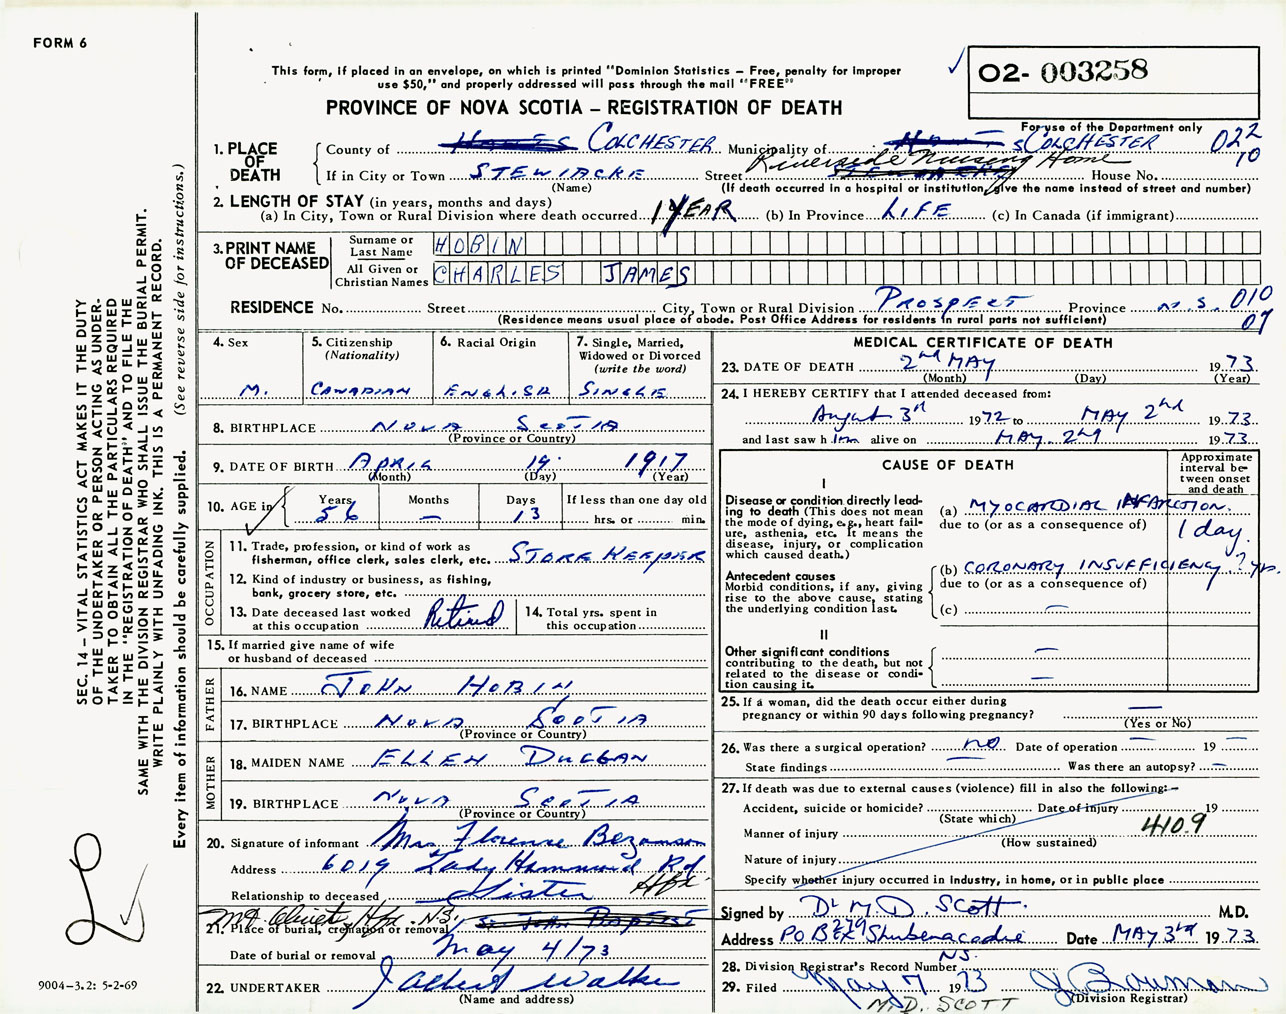 FORM 6
This form, if placed in an envelope, on which is printed "Dominion Statistics – Free, penalty for improper
use $50," and properly addressed will pass through the mail "FREE"
PROVINCE OF NOVA SCOTIA – REGISTRATION OF DEATH
02- 003258
For use of the Department only
022
10
1. PLACE OF DEATH
County of COLCHESTER Municipality of COLCHESTER
If in City or Town STEWIACKE Street Riverside Nursing Home House No.
(Name) (If death occurred in a hospital or institution, give the name instead of street and number)
2. LENGTH OF STAY (in years, months and days)
(a) In City, Town or Rural Division where death occurred 1 YEAR (b) In Province LIFE (c) In Canada (if immigrant)
3. PRINT NAME OF DECEASED
Surname or Last Name HOBIN
All Given or Christian Names CHARLES JAMES
RESIDENCE No. Street City, Town or Rural Division PROSPECT Province N.S. 010
07
(Residence means usual place of abode. Post Office Address for residents in rural parts not sufficient)
4. Sex
M.
5. Citizenship
(Nationality)
CANADIAN
6. Racial Origin
ENGLISH
7. Single, Married,
Widowed or Divorced
(write the word)
SINGLE
8. BIRTHPLACE NOVA SCOTIA
(Province or Country)
9. DATE OF BIRTH APRIL 19 1917
(Month) (Day) (Year)
10. AGE in
Years Months Days If less than one day old
56 — 13 hrs. or min.
OCCUPATION
11. Trade, profession, or kind of work as
fisherman, office clerk, sales clerk, etc. STORE KEEPER
12. Kind of industry or business, as fishing,
bank, grocery store, etc.
13. Date deceased last worked
at this occupation Retired
14. Total yrs. spent in
this occupation
15. If married give name of wife
or husband of deceased
FATHER
16. NAME JOHN HOBIN
17. BIRTHPLACE NOVA SCOTIA
(Province or Country)
MOTHER
18. MAIDEN NAME ELLEN DUGGAN
19. BIRTHPLACE NOVA SCOTIA
(Province or Country)
20. Signature of informant Mrs Florence Bezanson
Address 6019 Lady Hammond Rd
Hfx.
Relationship to deceased Sister
Mt. Olivet, Hfx. N.S.
21. Place of burial, cremation or removal
Date of burial or removal May 4/73
22. UNDERTAKER J Albert Walker
(Name and address)
MEDICAL CERTIFICATE OF DEATH
23. DATE OF DEATH 2nd MAY 1973
(Month) (Day) (Year)
24. I HEREBY CERTIFY that I attended deceased from:
August 3rd 1972 to MAY 2nd 1973
and last saw him alive on MAY 2nd 1973
CAUSE OF DEATH
Approximate
interval be-
tween onset
and death
I
Disease or condition directly lead-
ing to death (This does not mean
the mode of dying, e.g., heart fail-
ure, asthenia, etc. It means the
disease, injury, or complication
which caused death.)
(a) MYOCARDIAL INFARCTION.
due to (or as a consequence of)
1 day.
Antecedent causes
Morbid conditions, if any, giving
rise to the above cause, stating
the underlying condition last.
(b) CORONARY INSUFFICIENCY ? yrs.
due to (or as a consequence of)
(c) —
II
Other significant conditions
contributing to the death, but not
related to the disease or condi-
tion causing it.
—
—
25. If a woman, did the death occur either during
pregnancy or within 90 days following pregnancy? —
(Yes or No)
26. Was there a surgical operation? no Date of operation — 19 —
State findings — Was there an autopsy? —
27. If death was due to external causes (violence) fill in also the following:–
Accident, suicide or homicide? Date of injury 19
(State which)
Manner of injury 4109
(How sustained)
Nature of injury
Specify whether injury occurred in industry, in home, or in public place
Signed by Dr M.D. SCOTT. M.D.
Address PO Box 279 Shubenacadie Date MAY 3rd 1973
N.S.
28. Division Registrar's Record Number
29. Filed May 7 1973 J Bowman
(Division Registrar)
M.D. SCOTT
SEC. 14 – VITAL STATISTICS ACT MAKES IT THE DUTY
OF THE UNDERTAKER OR PERSON ACTING AS UNDER-
TAKER TO OBTAIN ALL THE PARTICULARS REQUIRED
IN THE "REGISTRATION OF DEATH" AND TO FILE THE
SAME WITH THE DIVISION REGISTRAR WHO SHALL ISSUE THE BURIAL PERMIT.
WRITE PLAINLY WITH UNFADING INK. THIS IS A PERMANENT RECORD.
Every item of information should be carefully supplied. (See reverse side for instructions.)
9004-3.2: 5-2-69